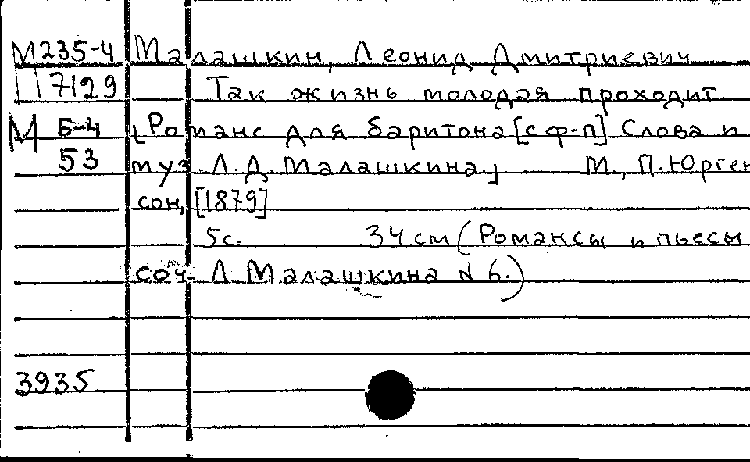 М235-4 Малашкин, Леонид Дмитриевич
П7129 Так жизнь молодая проходит
М Б-4 [Романс для баритона [с ф-п] Слова и
53 муз. Л.Д. Малашкина] М., П. Юрген
сон, [1879]
5с. 34 см (Романсы и пьесы
соч. Л. Малашкина № 6.)
3935